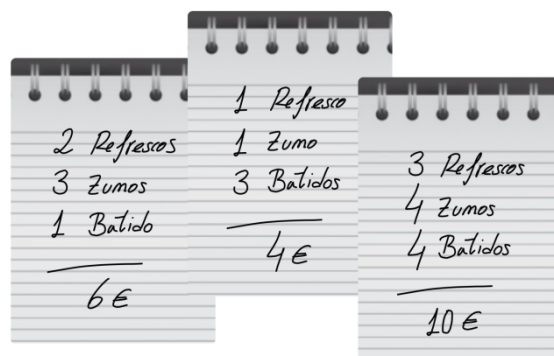 2 Refrescos
3 Zumos
1 Batido
6 €
1 Refresco
1 Zumo
3 Batidos
4 €
3 Refrescos
4 Zumos
4 Batidos
10 €